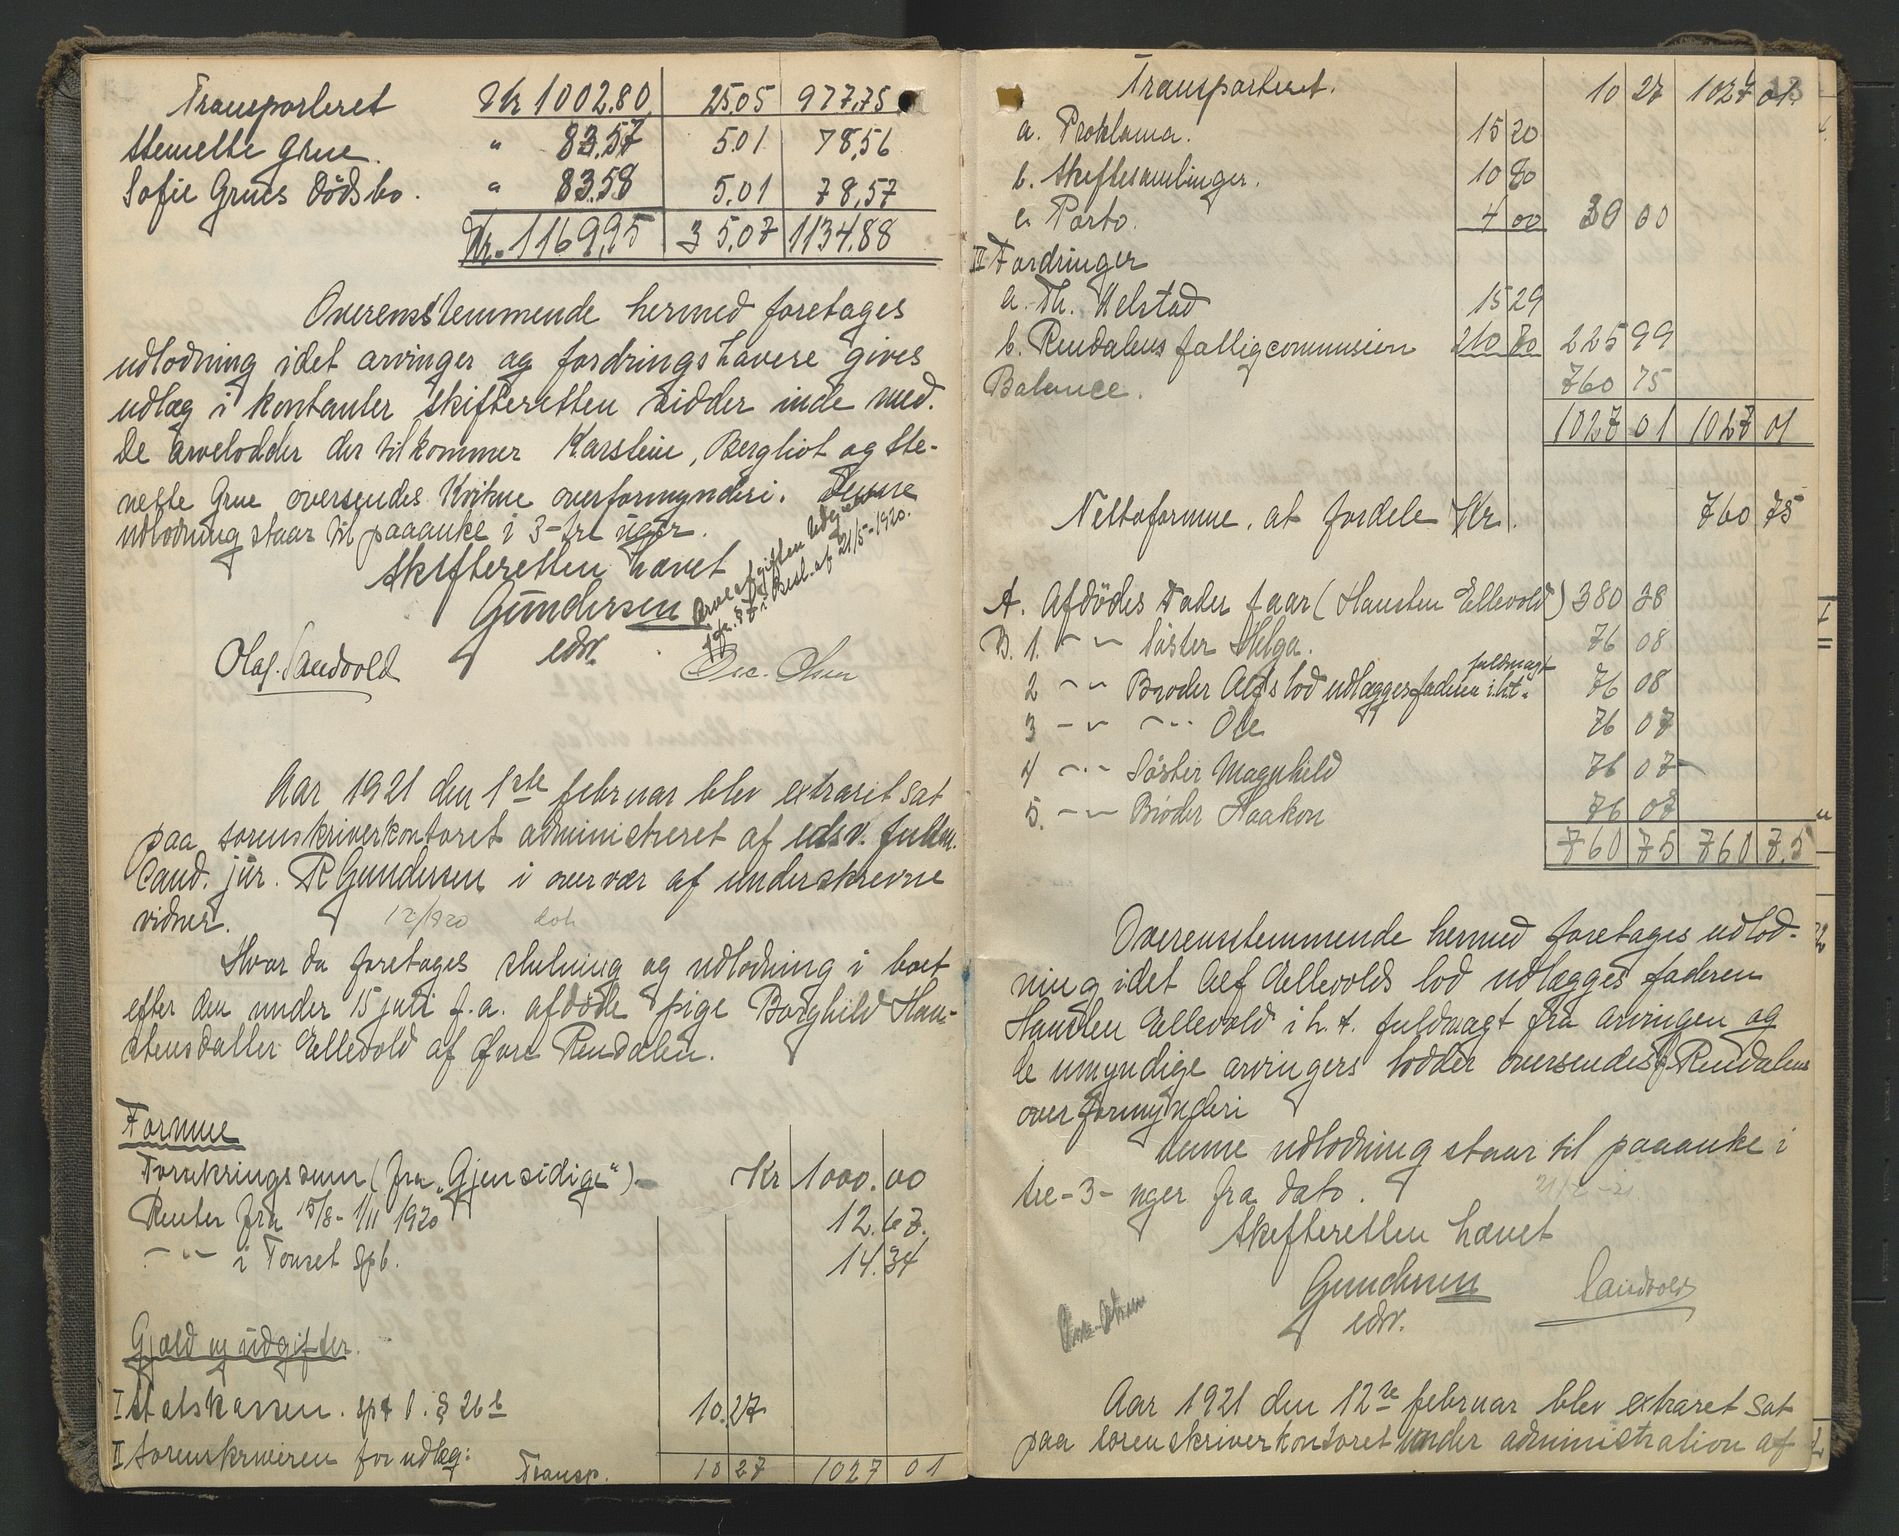 Transporteret Kr 1002.80 25.05 977,75
Stenette Grue. " 83.57 5.01 78,56
Sofie Grues dödsbo. " 83.58 5.01 78,57
Kr. 1169,95 35,07 1134,88
Overensstemmende hermed foretages
udlodning idet arvinger og fordringshavere gives
udlæg i kontanter skifteretten sidder inde med.
De arvelodder der tilkommer Karsten, Bergliot og Ste-
nette Grue oversendes Kvikne overformynderi. Denne
udlodning staar til paaanke i 3-tre uger.
Skifteretten hævet
Gundersen
edsv.
Olaf Sandvold
Osc. Olsen
Arveafgiften
21/5-1920.
Aar 1921 den 1ste februar blev extraret sat
paa sorenskriverkontoret administreret af edsv. fuldm.
Cand. jur. R Gundersen i overvær af underskrevne
vidner.
12/1920
Hvor da foretages slutning og udlodning i boet
efter den under 15 juli f.a. afdöde pige Borghild Han-
stensdatter Ellevold af Övre Rendalen.
Formue
Forsikringssum (fra "Gjensidige") Kr 1000.00
Renter fra 15/8 - 1/11 1920 12.67.
-"- i Tönset spb. 14.34
Gjæld og udgifter.
I Statskassen. spt l. § 26 b 10.27
II Sorenskriveren for udlæg:
Transp. 10 27 1027 01
Transporteret. 10 27 1027 01.
a. Proklama. 15 20
b. Skiftesamlinger. 10 80
c. Porto. 4 00 30 00
III Fordringer
a. Th. Helstad 15 29
b. Rendalens fattigcommission 210 70 225 99
Balance. 760 75
1027 01 1027 01
Nettoformue, at fordele Kr. 760 75
A. Afdödes Fader faar (Hansten Ellevold) 380 38
B. 1. -"- Söster Helga. 76 08
2 -"- Broder Alfs lod udlægges faderen i h.t. fuldmagt 76 08
3 -"- -"- Ole 76 07
4 -"- Söster Magnhild 76 07
5. -"- Broder Haakon 76 07
760 75 760 75
Overensstemmende hermed foretages udlod-
ning idet Alf Ellevolds lod udlægges faderen
Hansten Ellevold i h.t. fuldmagt fra arvingen og
de umyndige arvingers lodder oversendes Rendalens
overformynderi
Denne udlodning staar til paaanke i
tre-3- uger fra dato.
21/2-21
Skifteretten hævet
Gundersen
edsv.
Sandvold
Aar 1921 den 12te februar blev extraret sat
paa sorenskriverkontoret under administration af